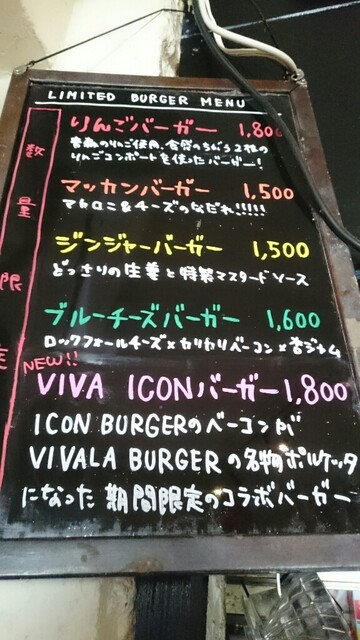 LIMITED BURGER MENU
数量限定
りんごバーガー 1,800
青森のりんご使用、食感のちがう2種の
りんごコンポートを使ったバーガー!
マッカンバーガー 1,500
マカロニ&チーズのなだれ!!!!!
ジンジャーバーガー 1,500
どっさりの生姜と特製マスタードソース
ブルーチーズバーガー 1,600
ロックフォールチーズ×カリカリベーコン×杏ジャム
NEW!!
VIVA ICONバーガー1,800
ICON BURGERのベーコンが
VIVALA BURGERの名物ポルケッタ
になった期間限定のコラボバーガー